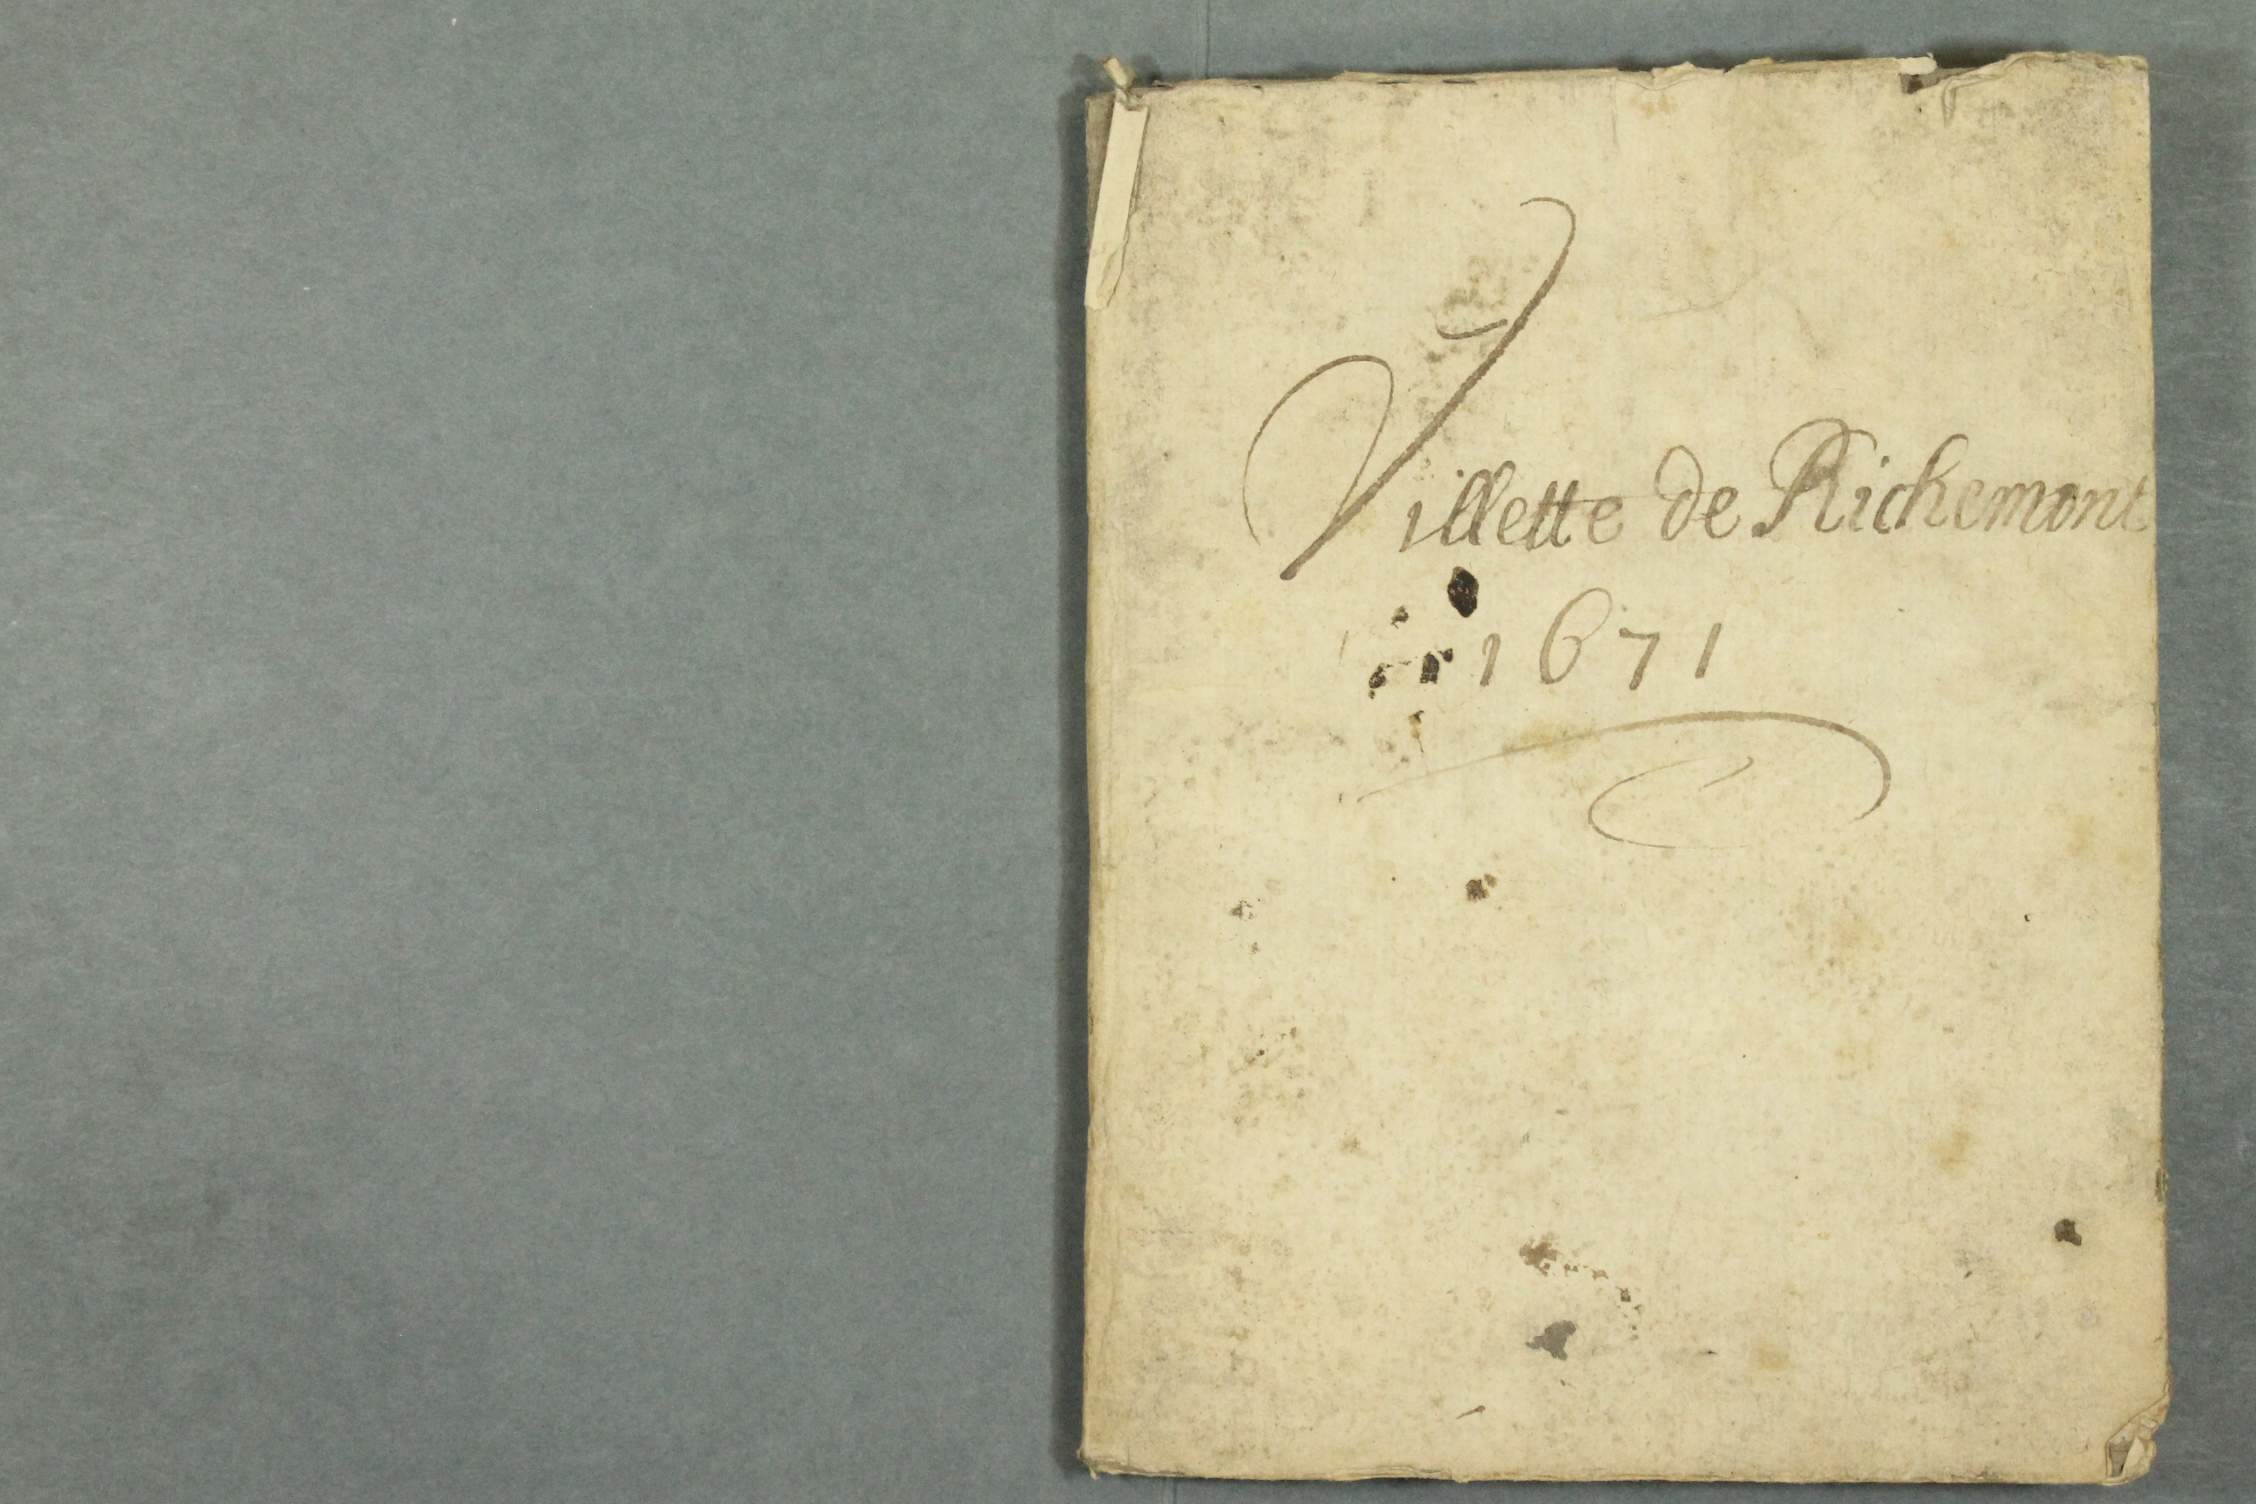 Villette de Richemont
1671